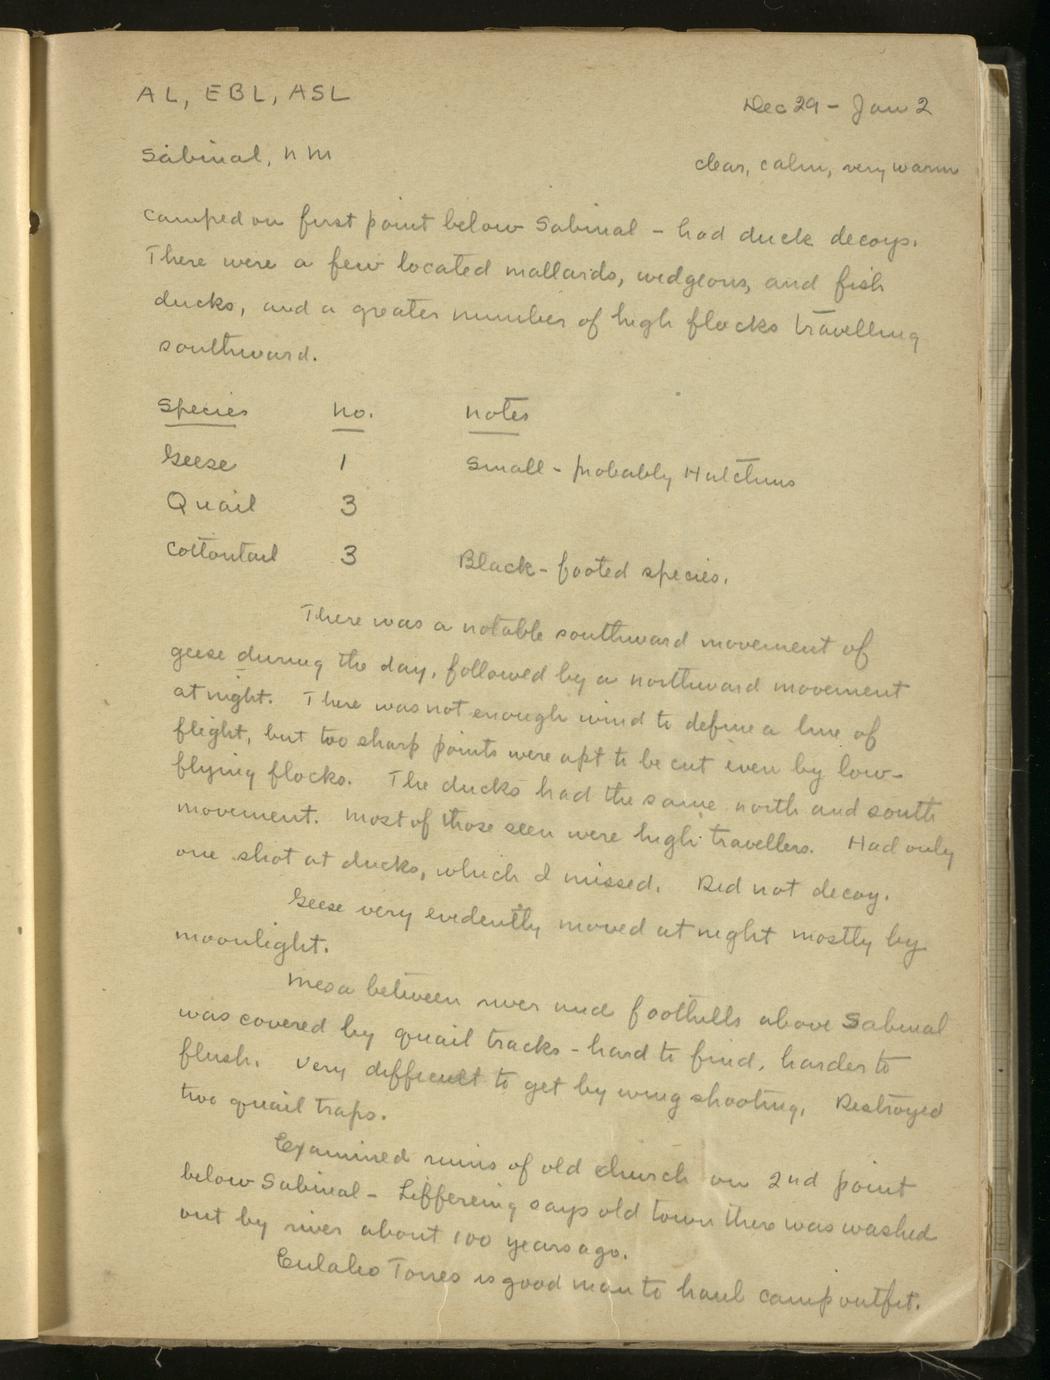 AL, EBL, ASL
Dec 29 - Jan 2
Sabinal, N M
clear, calm, very warm
Camped on first point below Sabinal - had duck decoys.
There were a few located mallards, widgeons, and fish
ducks, and a greater number of high flocks travelling
southward.
Species no. notes
Geese 1 Small - probably Hutchins
Quail 3
Cottontail 3 Black-footed species.
There was a notable southward movement of
geese during the day, followed by a northward movement
at night. There was not enough wind to define a line of
flight, but too sharp points were apt to be cut even by low-
flying flocks. The ducks had the same north and south
movement. Most of those seen were high travellers. Had only
one shot at ducks, which I missed. Did not decoy.
Geese very evidently moved at night mostly by
moonlight.
Mesa between river and foothills above Sabinal
was covered by quail tracks - hard to find, harder to
flush. Very difficult to get by wing shooting. Destroyed
two quail traps.
Examined ruins of old church on 2nd point
below Sabinal - says old town there was washed
out by river about 100 years ago.
Torres is good man to haul camp outfit.